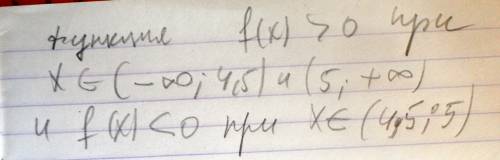 функция f(x) > 0 при
x ∈ (-∞; 4,5) и (5; +∞)
и f(x) < 0 при x ∈ (4,5; 5)